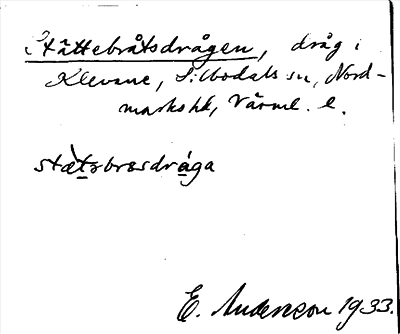 Stättebråtsdrågen, dråg i
Klevane, Silbodals sn, Nord-
marks hd, Värml. l.
stætəbrosdråga
E. Andersson 1933.